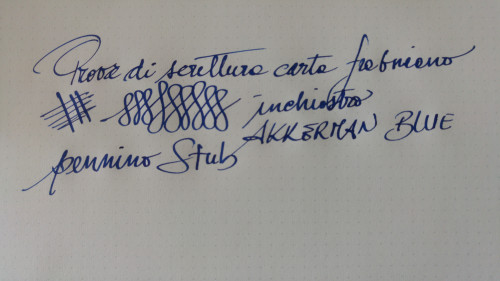 Prova di scrittura carta fabriano
inchiostro
AKKERMAN BLUE
pennino Stub